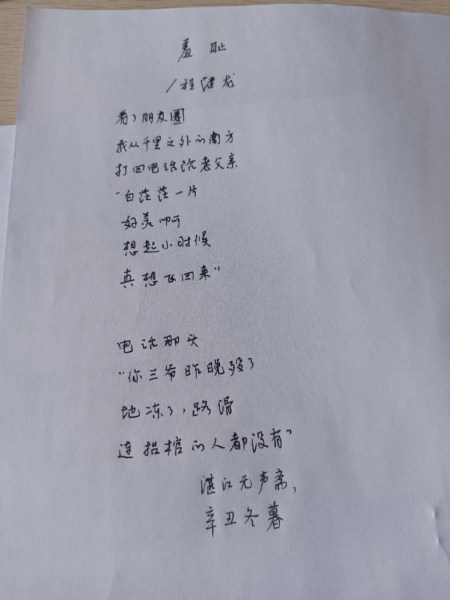 羞耻
/程健龙
看了朋友圈
我从千里之外的南方
打回电话说老父亲
“白茫茫一片
好美啊
想起小时候
真想飞回来”
电话那头
“你三爷昨晚殁了
地冻了，路滑
连抬棺的人都没有”
湛江无声斋，
辛丑冬暮